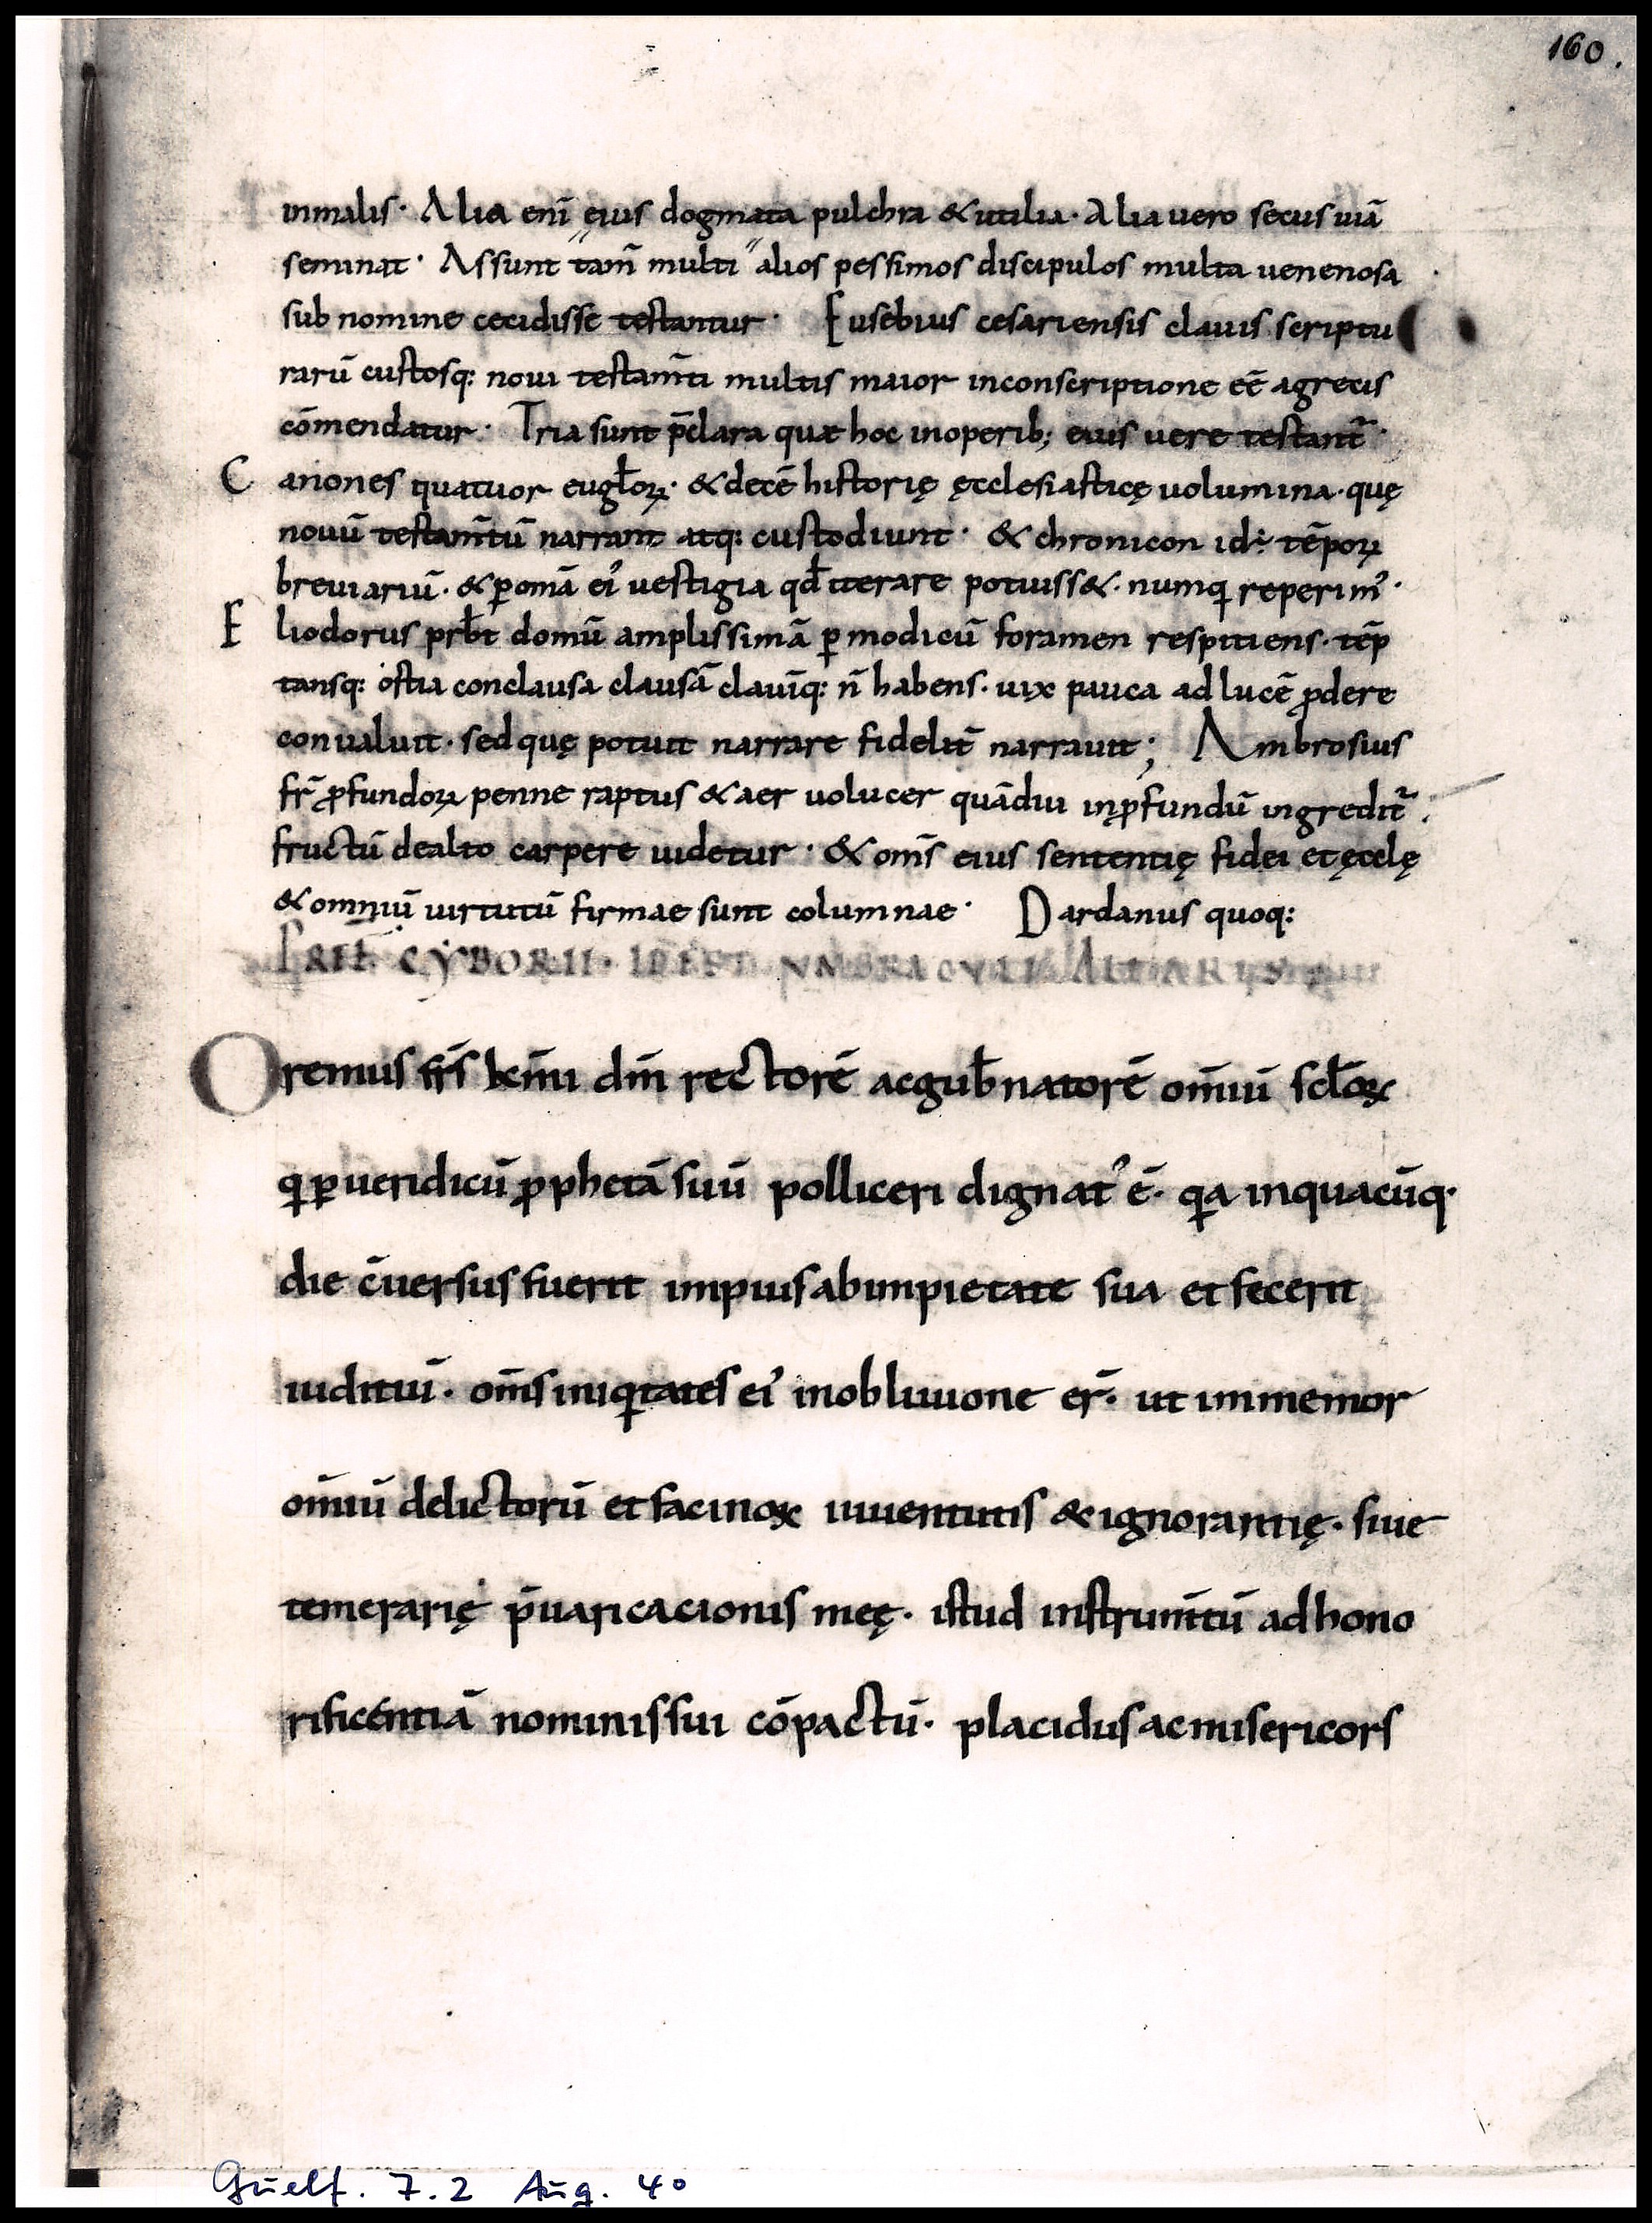 160.
inmalis· Alia eni͞ eius dogmata pulchra & utilia· Alia uero secus uiā
seminat· Assunt tam̄ multi alios pessimos discipulos multa uenenosa
sub nomine cecidisse testantur· Eusebius cesariensis clauis scriptu
rarū custosq: noui testam̄ti multis maior inconscriptione eē agrecis
cōmendatur· Tria sunt p̄clara quæ hoc inoperib; eius uere testant̄·
Canones quatuor eugl̄oꝝ· & decē historię ęcclesiasticę uolumina· quę
nouū testam̄tū narrant atq: custodiunt· & chronicon id÷ tēpoꝝ
breuiariū· & ꝑomā ei᾽ uestigia qd̄ iterare potuiss&· numq̄ reperim᾽·
Eliodorus prb̄t domū amplissimā ꝑ modicū foramen respitiens· tēp
tansq: ostia conclausa clausā clauīq: n̄ habens· uix pauca ad lucē ꝓdere
conualuit· sed quę potuit narrare fidelit̄ narrauit; Ambrosius
fr̄ ꝓfundoꝝ penne raptus & aer uolucer quādiu inꝓfundū ingredit̄·
fructū dealto carpere uidetur· & om̄s eius sententię fidei et ęcclę
& omniū uirtutū firmae sunt columnae· Dardanus quoq:
CYBORII· IDEST UMBRACULI ALTARIS
Oremus frs̄ kmi͞ dm̄ rectorē acgub̄natorē om̄iū scl̄oꝝ
q ꝑ ueridicū ꝓphetā suū polliceri dignat᾽ ē· qa inquacūq·
die c̄uersus fuerit impius ab impietate sua et fecerit
iuditiū· om̄s iniqtates ei᾽ inobliuione er̄· ut immemor
om̄iū delictorū et facinoꝝ iuuentutis & ignorantię· siue
temerarię p̄uaricacionis meę· istud instrum̄tū ad hono
rificentiā nominis sui cōpactū· placidus ac misericors
Guelf. 7.2 Aug. 4o